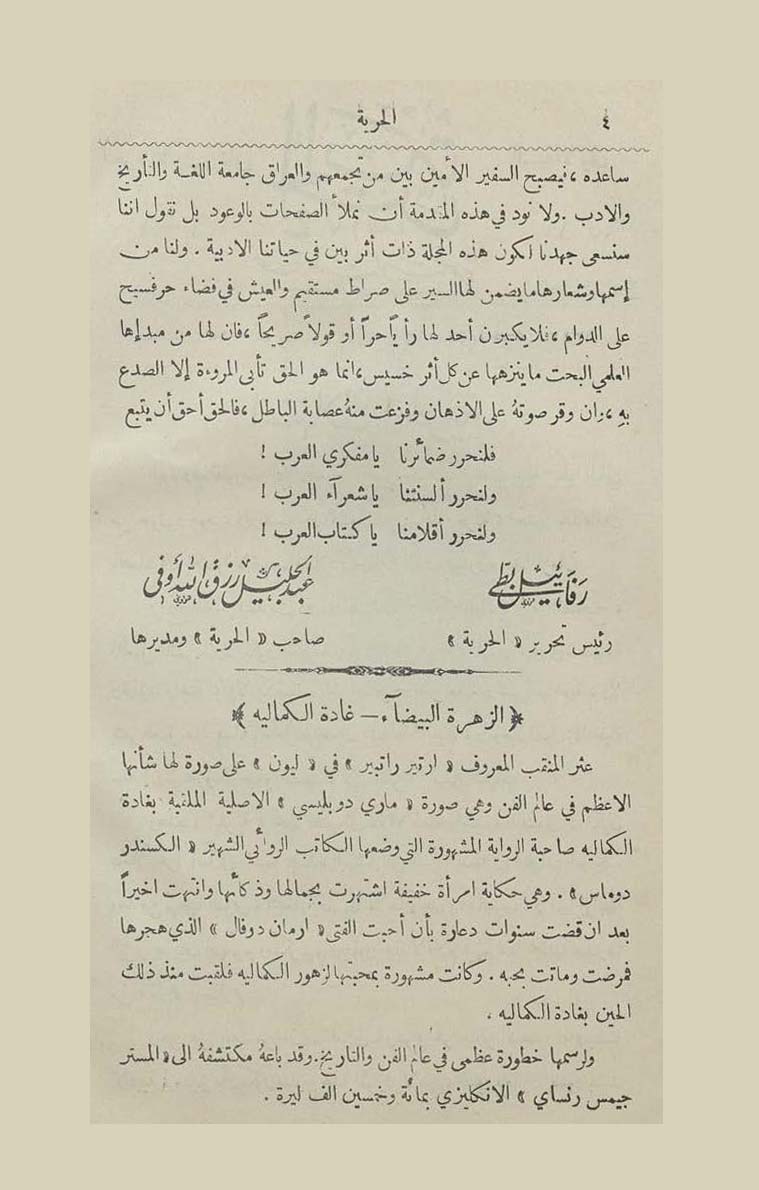 ٤ الحرية
ساعده ، فيصبح السفير الأمين بين من تجمعهم والعراق جامعة اللغة والتأريخ
والادب . ولا نود في هذه المقدمة أن نملأ الصفحات بالوعود بل نقول اننا
سنسعى جهدنا لتكون هذه المجلة ذات أثر بين في حياتنا الادبية . ولنا من
إسمها وشعارها ما يضمن لها السير على صراط مستقيم والعيش في فضاء حر فسيح
على الدوام ، فلا يكبرن أحد لها رأياً حراً أو قولاً صريحاً ، فان لها من مبدإها
العلمي البحت ما ينزهها عن كل أثر خسيس ، انما هو الحق تأبى المروءة إلا الصدع
بهِ ، وان وقر صوتهُ على الاذهان وفزعت منهُ عصابة الباطل ، فالحق أحق أن يتبع
فلنحرر ضمائرنا يا مفكري العرب !
ولنحرر ألسنتنا يا شعرآء العرب !
ولنحرر أقلامنا يا كتاب العرب !
رفائيل بطي عبد الجليل رزق الله أوفي
رئيس تحرير « الحرية » صاحب « الحرية » ومديرها
﴿ الزهرة البيضآء – غادة الكماليه ﴾
عثر المنقب المعروف « ارتير راتبير » في « ليون » على صورة لها شأنها
الاعظم في عالم الفن وهي صورة « ماري دوبليسي » الاصلية الملقبة بغادة
الكماليه صاحبة الرواية المشهورة التي وضعها الكاتب الروائي الشهير « الكسندر
دوماس » . وهي حكاية امرأة خفيفة اشتهرت بجمالها وذكائها وانتهت اخيراً
بعد ان قضت سنوات دعارة بأن أحبت الفتى « ارمان دوفال » الذي هجرها
فمرضت وماتت بحبه . وكانت مشهورة بمحبتها لزهور الكماليه فلقبت منذ ذلك
الحين بغادة الكماليه .
ولرسمها خطورة عظمى في عالم الفن والتاريخ . وقد باعهُ مكتشفهُ الى « المستر
جيمس رنساي » الانكليزي بمائة وخمسين الف ليرة .